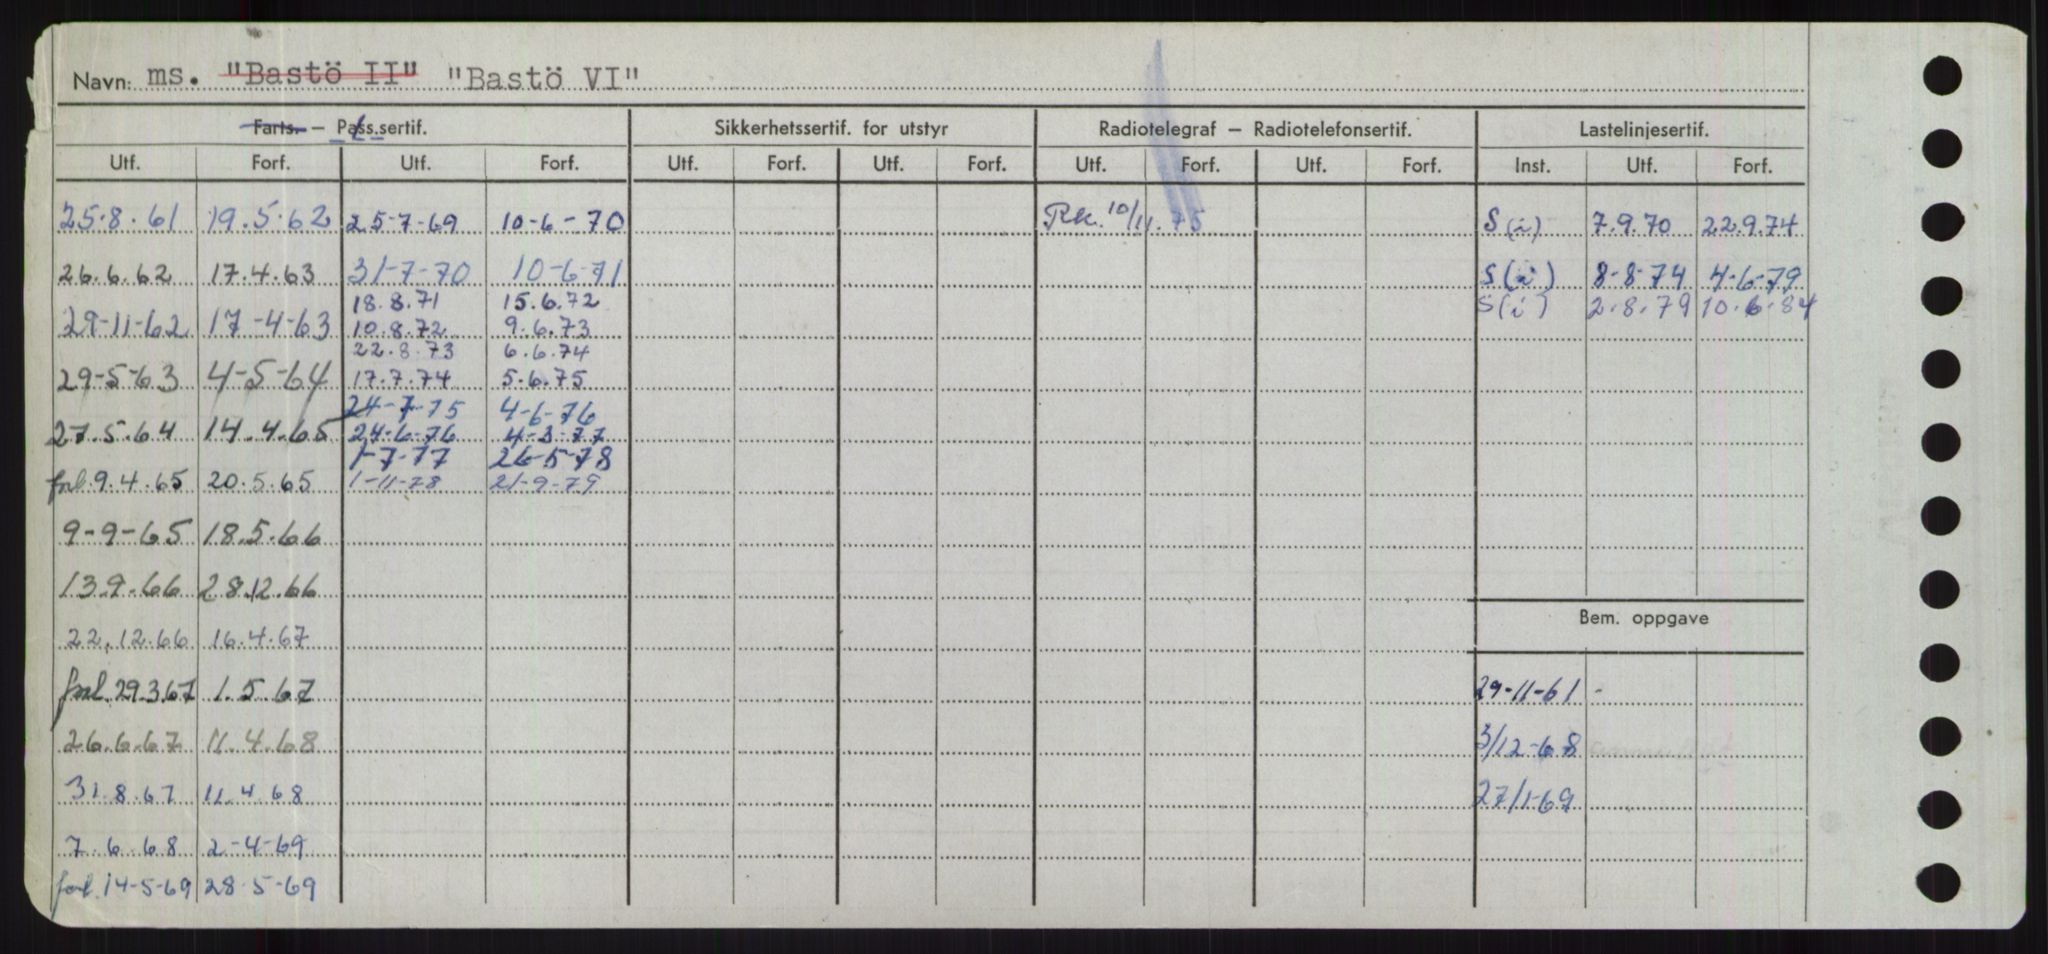 Navn: ms. "Bastö II" "Bastö VI"
Farts. – Pass.sertif. Sikkerhetssertif. for utstyr Radiotelegraf – Radiotelefonsertif. Lastelinjesertif.
Utf. Forf. Utf. Forf. Utf. Forf. Utf. Forf. Utf. Forf. Utf. Forf. Inst. Utf. Forf.
25.8.61 19.5.62 25-7-69 10-6-70 Rk. 10/11.75 S(i) 7.9.70 22.9.74
26.6.62 17.4.63 31-7-70 10-6-71 S(i) 8-8-74 4-6-79
18.8.71 15.6.72 S(i) 2.8.79 10.6.84
29-11-62 17-4-63 10.8.72 9.6.73
22.8.73 6.6.74
29-5-63 4-5-64 17.7.74 5.6.75
24-7-75 4-6-76
27.5.64 14.4.65 24-6-76 4-3-77
1-7-77 26-5-78
forl. 9.4.65 20.5.65 1-11-78 21-9-79
9-9-65 18.5.66
13.9.66 28.12.66
Bem. oppgave
22.12.66 16.4.67
forl. 29.3.67 1.5.67 29-11-61 -
26.6.67 11.4.68 3/12-68
31.8.67 11.4.68 27/1-69
7.6.68 2-4-69
forl. 14-5-69 28-5-69